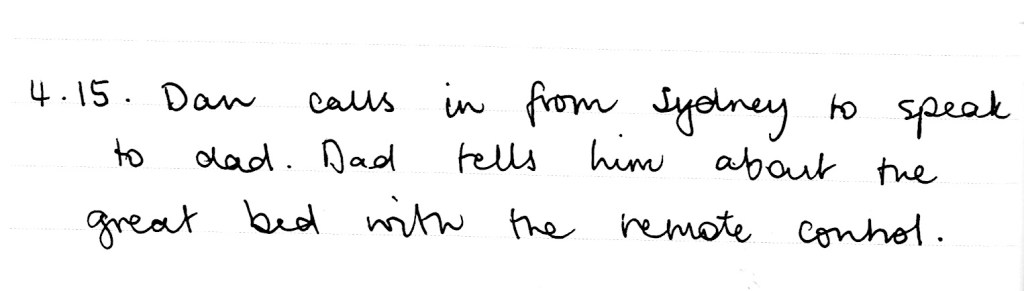 4.15. Dan calls in from Sydney to speak
to dad. Dad tells him about the
great bed with the remote control.